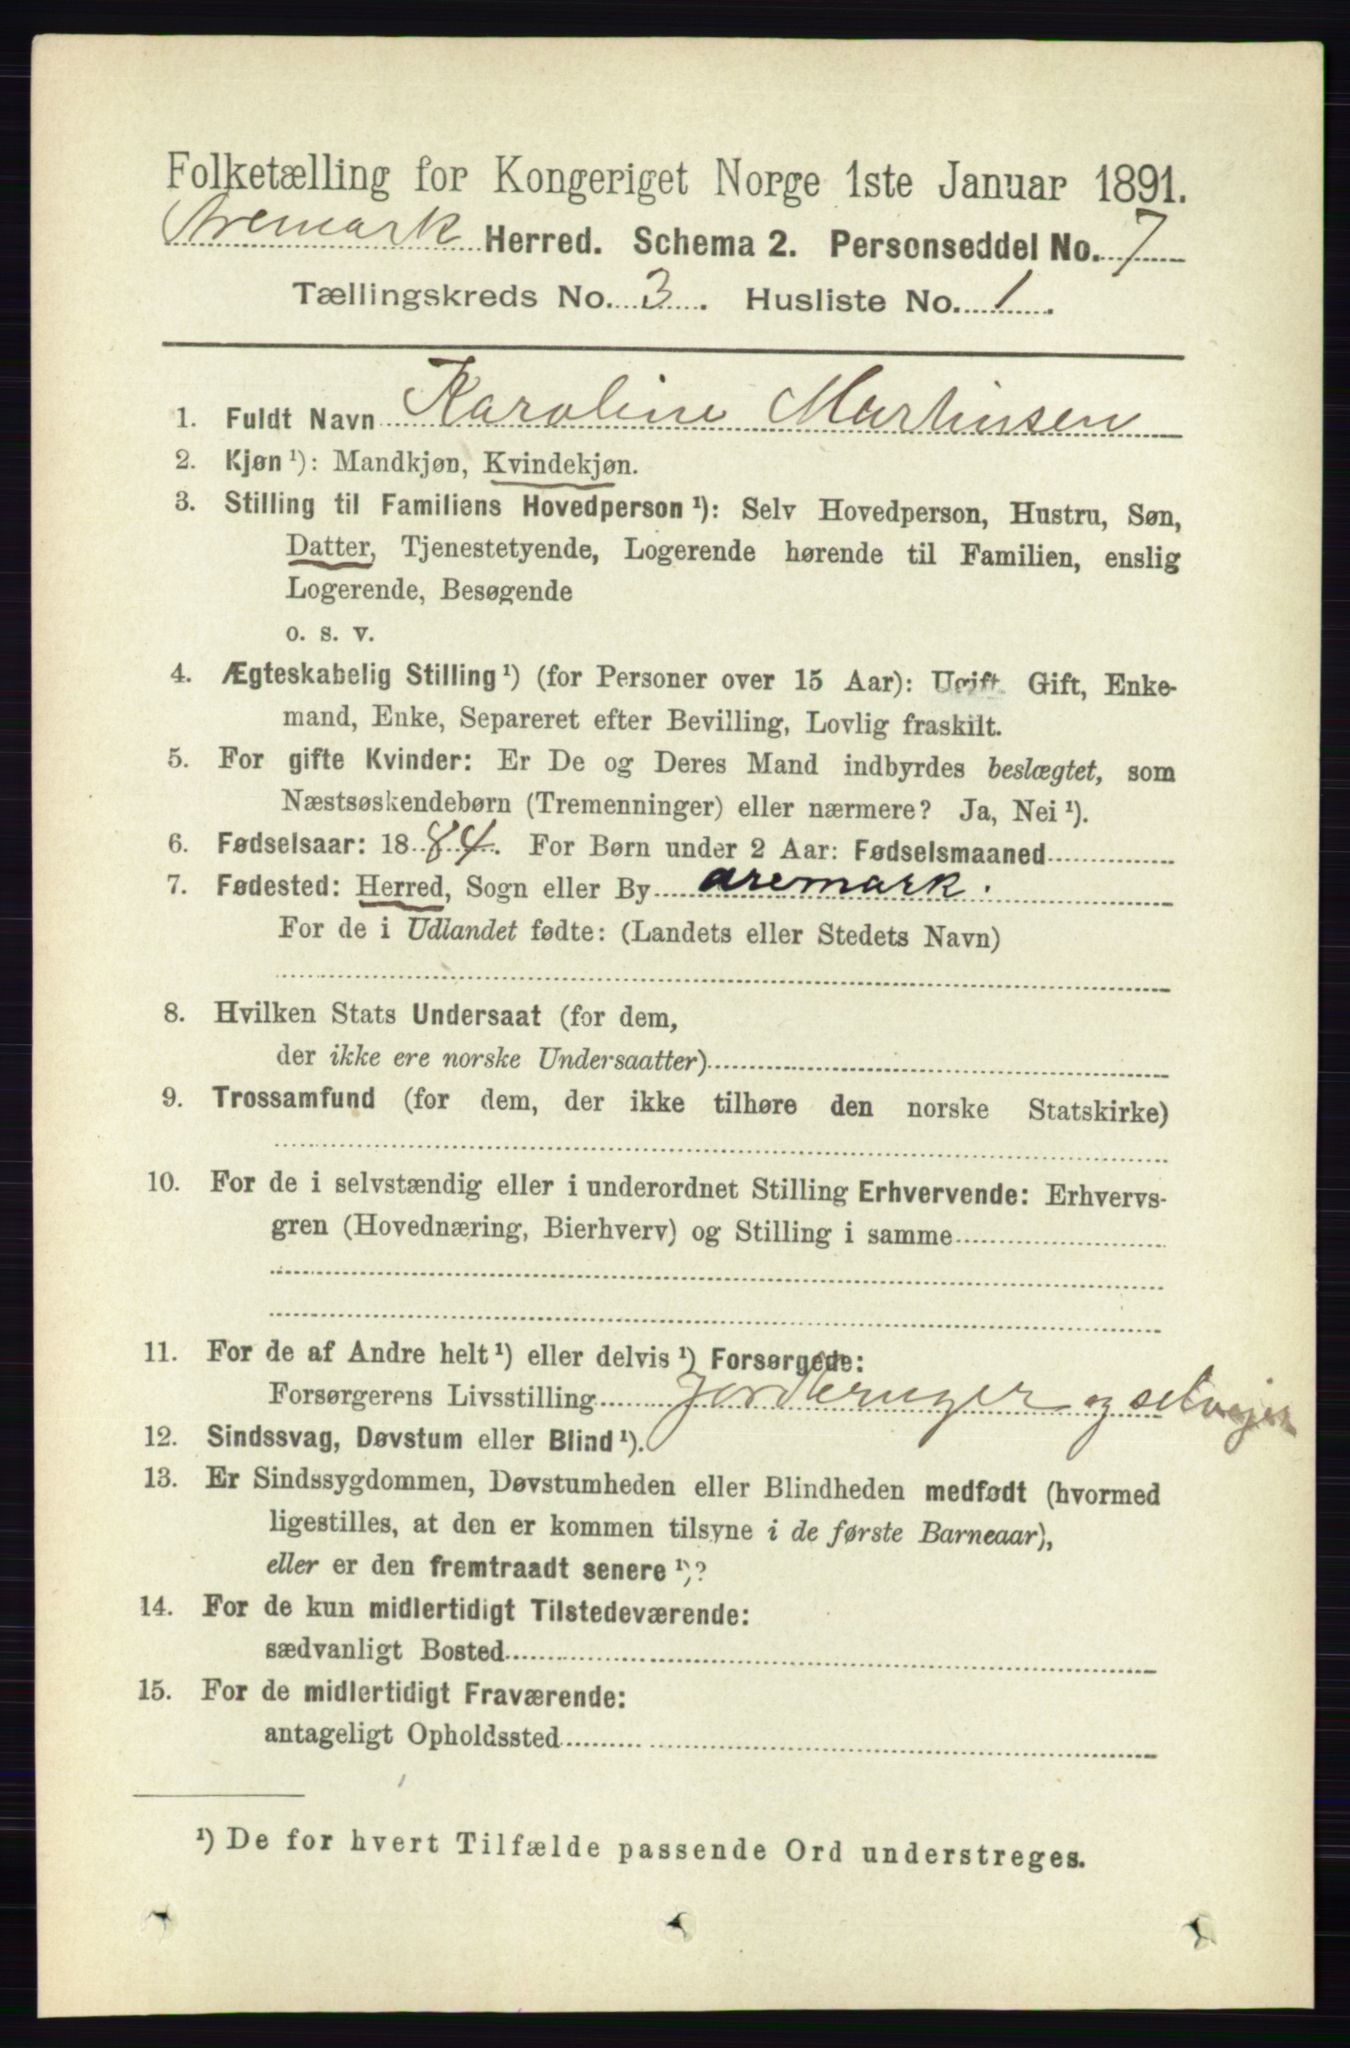 Folketælling for Kongeriget Norge 1ste Januar 1891.
Aremark Herred. Schema 2. Personseddel No. 7
Tællingskreds No. 3. Husliste No. 1.
1. Fuldt Navn Karoline Martinsen
2. Kjøn ¹): Mandkjøn, Kvindekjøn.
3. Stilling til Familiens Hovedperson ¹): Selv Hovedperson, Hustru, Søn,
Datter, Tjenestetyende, Logerende hørende til Familien, enslig
Logerende, Besøgende
o. s. v.
4. Ægteskabelig Stilling ¹) (for Personer over 15 Aar): Ugift, Gift, Enke-
mand, Enke, Separeret efter Bevilling, Lovlig fraskilt.
5. For gifte Kvinder: Er De og Deres Mand indbyrdes beslægtet, som
Næstsøskendebørn (Tremenninger) eller nærmere? Ja, Nei ¹).
6. Fødselsaar: 1884. For Børn under 2 Aar: Fødselsmaaned
7. Fødested: Herred, Sogn eller By aremark.
For de i Udlandet fødte: (Landets eller Stedets Navn)
8. Hvilken Stats Undersaat (for dem,
der ikke ere norske Undersaatter)
9. Trossamfund (for dem, der ikke tilhøre den norske Statskirke)
10. For de i selvstændig eller i underordnet Stilling Erhvervende: Erhvervs-
gren (Hovednæring, Bierhverv) og Stilling i samme
11. For de af Andre helt ¹) eller delvis ¹) Forsørgede:
Forsørgerens Livsstilling Jordbruger og selvejer
12. Sindssvag, Døvstum eller Blind ¹).
13. Er Sindssygdommen, Døvstumheden eller Blindheden medfødt (hvormed
ligestilles, at den er kommen tilsyne i de første Barneaar),
eller er den fremtraadt senere ¹)?
14. For de kun midlertidigt Tilstedeværende:
sædvanligt Bosted
15. For de midlertidigt Fraværende:
antageligt Opholdssted
¹) De for hvert Tilfælde passende Ord understreges.